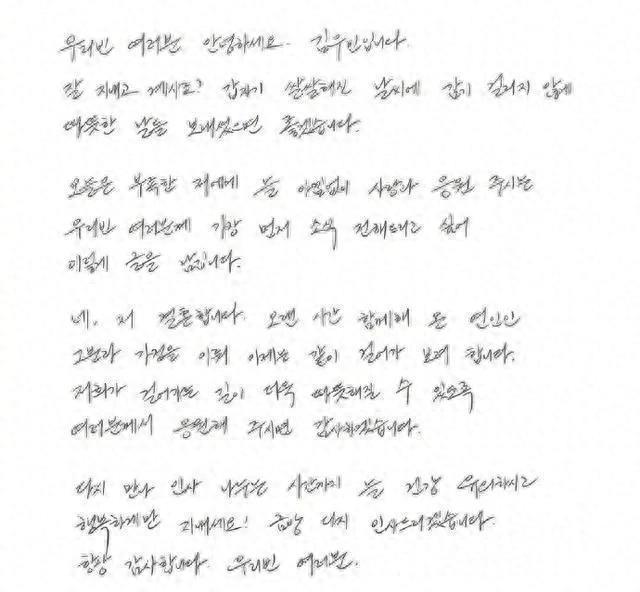 우리빈 여러분, 안녕하세요. 김우빈입니다.
잘 지내고 계시죠? 갑자기 쌀쌀해진 날씨에 감기 걸리지 않게
따뜻한 날들 보내셨으면 좋겠습니다.
오늘은 부족한 저에게 늘 아낌없이 사랑과 응원 주시는
우리빈 여러분께 가장 먼저 소식 전해드리고 싶어
이렇게 글을 남깁니다.
네, 저 결혼합니다. 오랜 시간 함께해 온 연인인
그분과 가정을 이뤄 이제는 같이 걸어가 보려 합니다.
저희가 걸어가는 길이 더욱 따뜻해질 수 있도록
여러분께서 응원해 주시면 감사하겠습니다.
다시 만나 인사 나누는 시간까지 늘 건강 유의하시고
행복하게만 지내세요! 금방 다시 인사드리겠습니다.
항상 감사합니다. 우리빈 여러분.